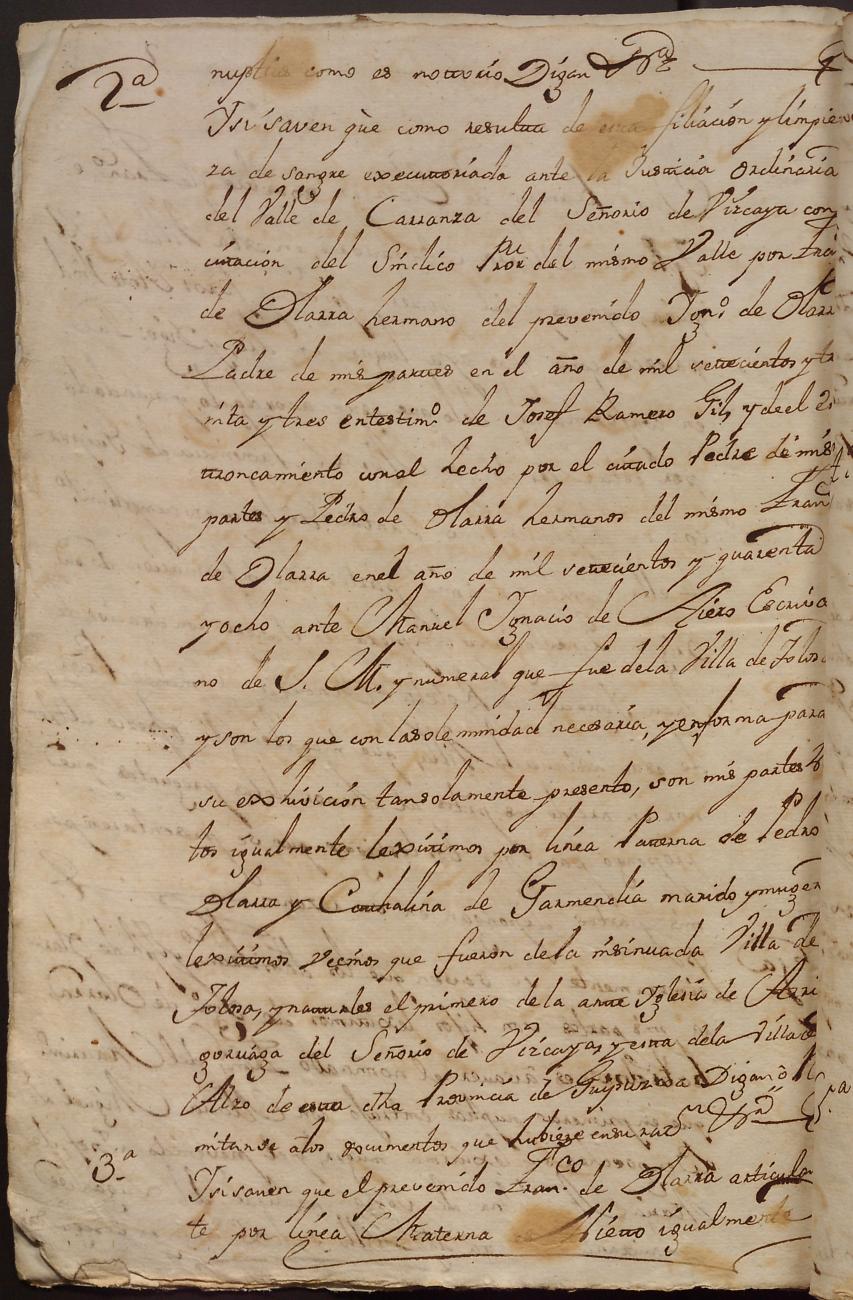 nuptias como es notorio Digan &ra
2.a Y si saven que como resulta de esta filiación y limpie
za de sangre executoriada ante la Justicia ordinaria
del Valle de Carranza del Señorio de Vizcaya con
citación del Sindico Pror del mismo Valle por
de Olarra hermano del prevenido Ygn.o de Olarr
Padre de mis partes en el año de mil setecientos y tr
inta y tres en testim.o de Josef Ramero Gil, y de el
troncamiento con el hecho por el citado Pedre de mis
partes y Pedro de Olarra hermanos del mismo Fran.co
de Olarra en el año de mil setecientos y quarenta
y ocho ante Manuel Ygnacio de Escriva
no de S. M. y numeral que fue de la Villa de Tolos
y son los que con la solemnidad necesaria, y en forma para
su exhivición tan solamente presento, son mis partes
tos igualmente lexitimos por linea Paterna de Pedro
Olarra y Cathalina de Garmendia marido y muger
lexitimos vecinos que fueron de la insinuada Villa de
Tolosa, y naturales el primero de la ante Yglesia de Arri
gorriaga del Señorio de Vizcaya, y esta de la Villa de
Alzo de esta dha Provincia de Guipuzcoa Digan
mitanse a los documentos que hubiere en su raz.n &ra
3.a Y si saven que el prevenido Fran.co de Olarra articula
te por linea Materna Nieto igualmente